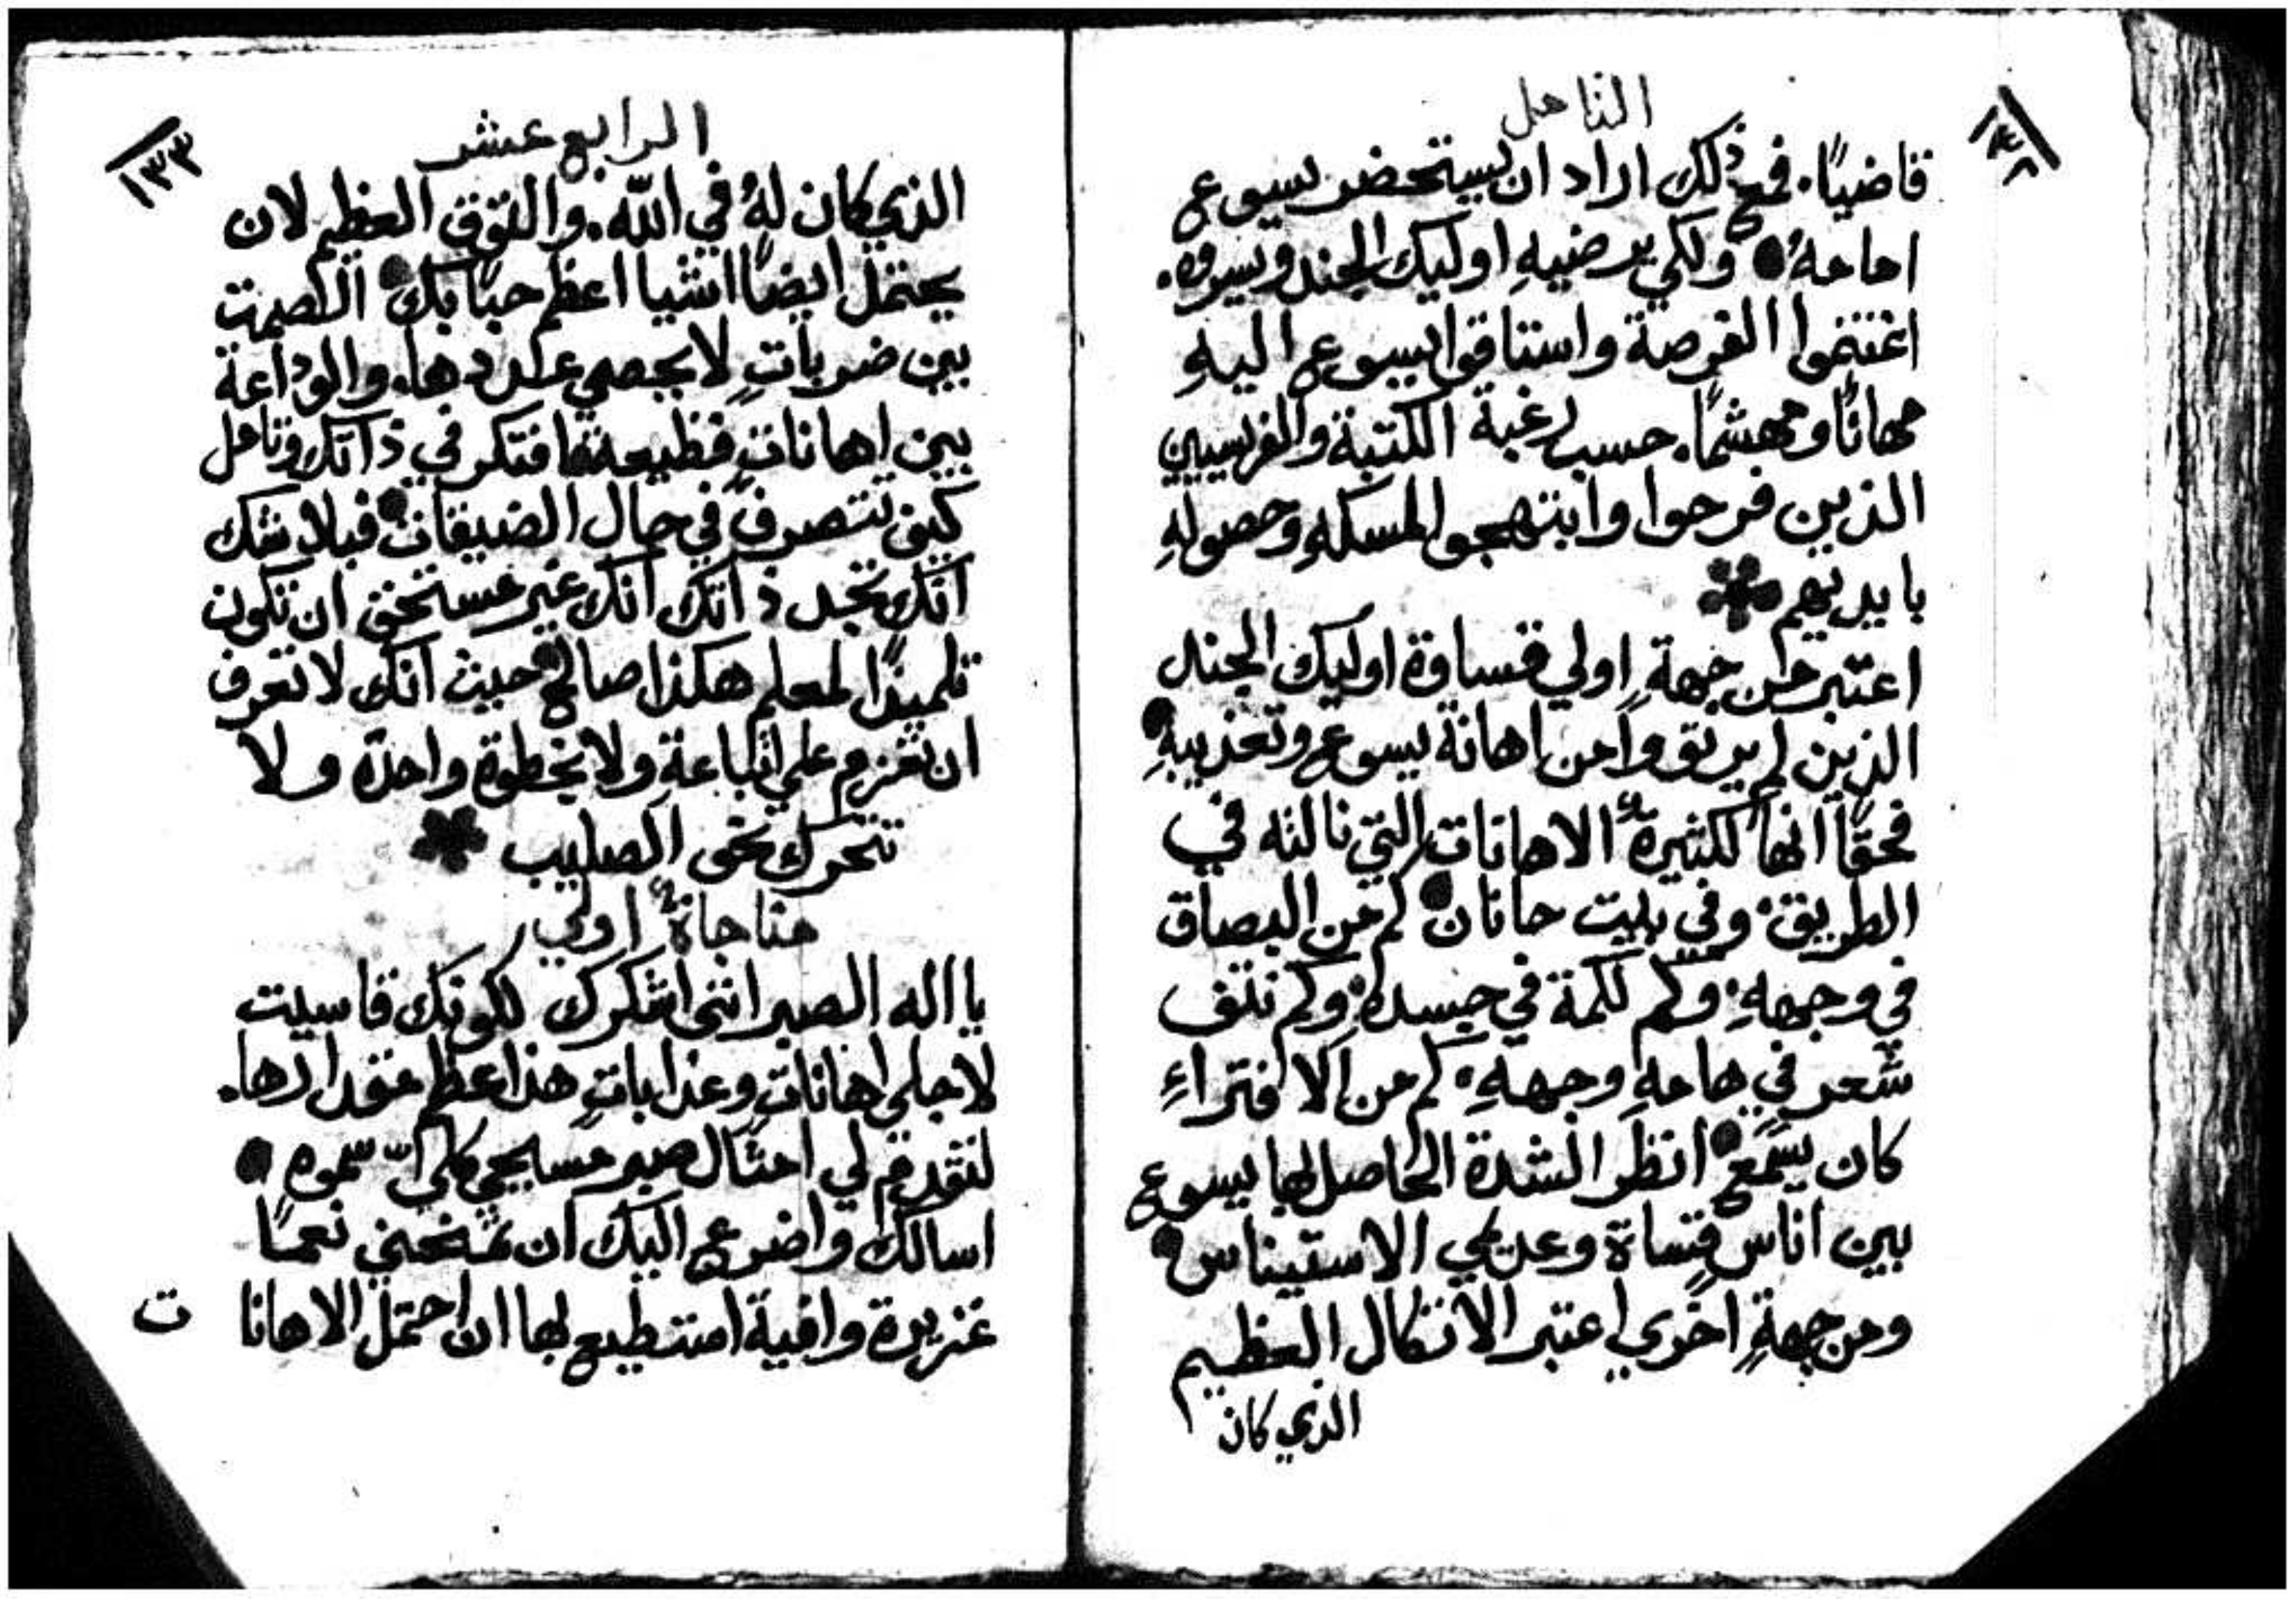 التامل
١٣٢
قاضيًا. فمع ذلك اراد ان يستحضر يسوع
امامهُ ● ولكي يرضيهِ اوليك الجند ويسروه.
اغتنموا الفرصة واستاقوا يسوع اليهِ
مهانًا ومهشمًا. حسب رغبة الكتبة والفريسيين
الذين فرحوا وابتهجوا لمسكهِ وحصولهِ
بايديهم
اعتبر من جهةٍ اولي قساوة اوليك الجند
الذين لم يريقوا من اهانة يسوع وتعذيبهِ ●
فحقًا انها لكثيرةٌ الاهانات التي نالته في
الطريق. وفي بيت حانان ● كم من البصاق
في وجههِ. وكم لكمة في جسده. وكم نتف
شعر في هامهِ وجههِ. كم من الافتراءِ
كان يسمع ● انظر الشدة الحاصل بها يسوع
بين اناس قساة وعديمي الاستيناس ●
ومن جهةٍ اخري اعتبر الاتكال العظيم
الذي كان
الرابع عشر
١٣٣
الذي كان لهُ في الله. والتوق العظيم لان
يحتمل ايضًا اشيا اعظم حبًا بك ● الصمت
بين ضرباتٍ لا يحصي عددها. والوداعة
بين اهاناتٍ فظيعة افتكر في ذاتك وتامل
كيف تتصرف في حال الضيقات ● فبلا شك
انك تجد ذاتك انك غير مستحق ان تكون
تلميذًا لمعلم هكذا صالح ● حيث انك لا تعرف
ان تعزم علي اتباعهِ ولا بخطوة واحدة ولا
تتحرك نحو الصليب
مناجاةٌ اولي
يا اله الصبر انني اشكرك لكونك قاسيت
لاجلي اهاناتٍ وعذاباتٍ هذا عظم مقدارها.
لتقدم لي امثال صبر مسيحي كلي السموه ●
اسالك واضرع اليك ان تمنحني نعمًا
غزيرة وافية استطيع بها ان احتمل الاهانا ت